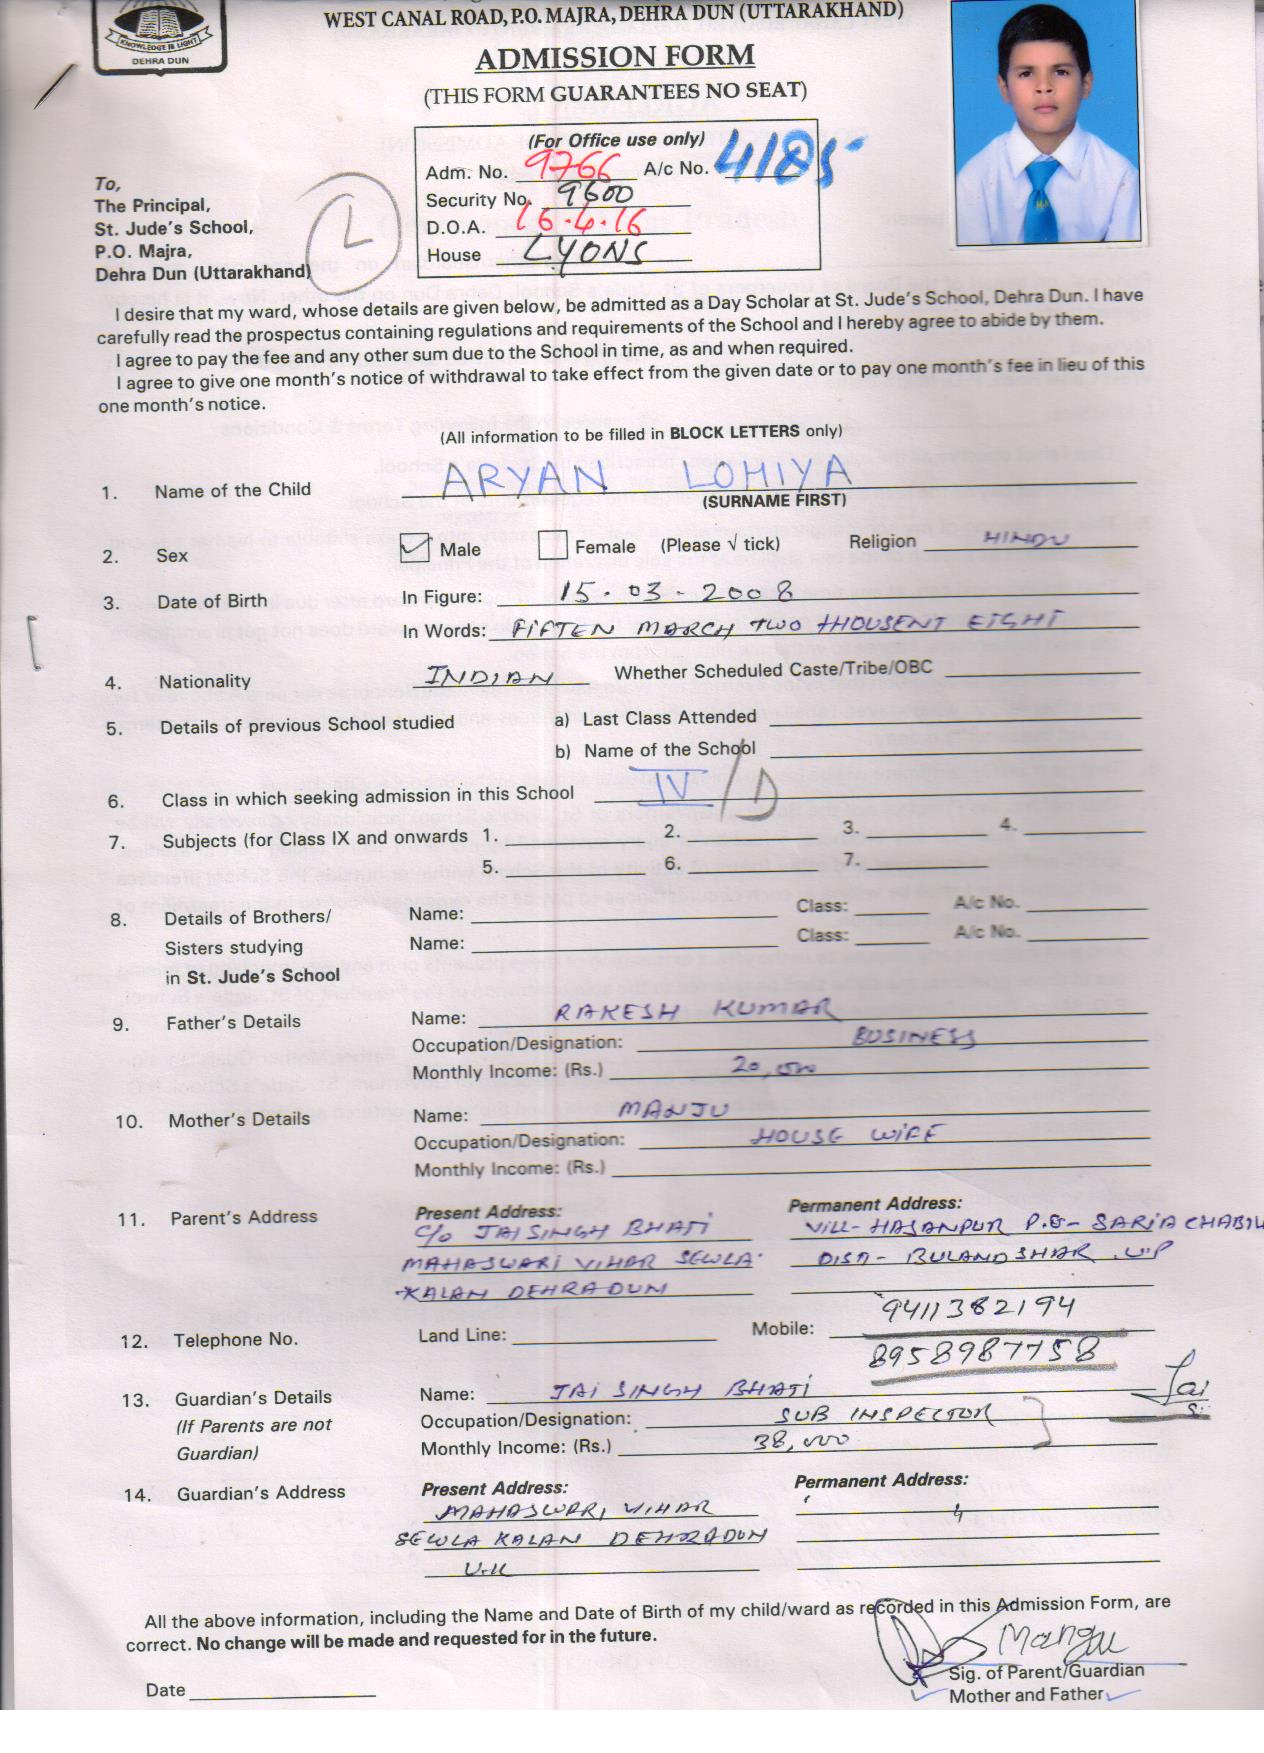 KNOWLEDGE IS LIGHT
DEHRA DUN
WEST CANAL ROAD, P.O. MAJRA, DEHRA DUN (UTTARAKHAND)
ADMISSION FORM
(THIS FORM GUARANTEES NO SEAT)
(For Office use only)
Adm. No. 9766 A/c No. 4185
Security No. 9600
D.O.A. 16.4.16
House LYONS
L
To,
The Principal,
St. Jude's School,
P.O. Majra,
Dehra Dun (Uttarakhand)
I desire that my ward, whose details are given below, be admitted as a Day Scholar at St. Jude's School, Dehra Dun. I have
carefully read the prospectus containing regulations and requirements of the School and I hereby agree to abide by them.
I agree to pay the fee and any other sum due to the School in time, as and when required.
I agree to give one month's notice of withdrawal to take effect from the given date or to pay one month's fee in lieu of this
one month's notice.
(All information to be filled in BLOCK LETTERS only)
1. Name of the Child ARYAN LOHIYA
(SURNAME FIRST)
2. Sex Male Female (Please √ tick) Religion HINDU
3. Date of Birth In Figure: 15.03-2008
In Words: FIFTEN MARCH TWO THOUSENT EIGHT
4. Nationality INDIAN Whether Scheduled Caste/Tribe/OBC
5. Details of previous School studied a) Last Class Attended
b) Name of the School
6. Class in which seeking admission in this School IV/D
7. Subjects (for Class IX and onwards 1. 2. 3. 4.
5. 6. 7.
8. Details of Brothers/ Name: Class: A/c No.
Sisters studying Name: Class: A/c No.
in St. Jude's School
9. Father's Details Name: RAKESH KUMAR
Occupation/Designation: BUSINESS
Monthly Income: (Rs.) 20,000
10. Mother's Details Name: MANJU
Occupation/Designation: HOUSE WIFE
Monthly Income: (Rs.)
11. Parent's Address Present Address: Permanent Address:
C/o JAI SINGH BHATI VILL- HASANPUR P.O- SARIA CHABIL
MAHASWARI VIHAR SEWLA DIST- BULANDSHAR U.P
KALAN DEHRADUN
12. Telephone No. Land Line: Mobile: 9411382194
8958987758
13. Guardian's Details Name: JAI SINGH BHATI Jai
(If Parents are not Occupation/Designation: SUB INSPECTOR
Guardian) Monthly Income: (Rs.) 38,000
14. Guardian's Address Present Address: Permanent Address:
MAHASWARI VIHAR
SEWLA KALAN DEHRADUN
U.K
All the above information, including the Name and Date of Birth of my child/ward as recorded in this Admission Form, are
correct. No change will be made and requested for in the future.
Mangu
Sig. of Parent/Guardian
Date Mother and Father